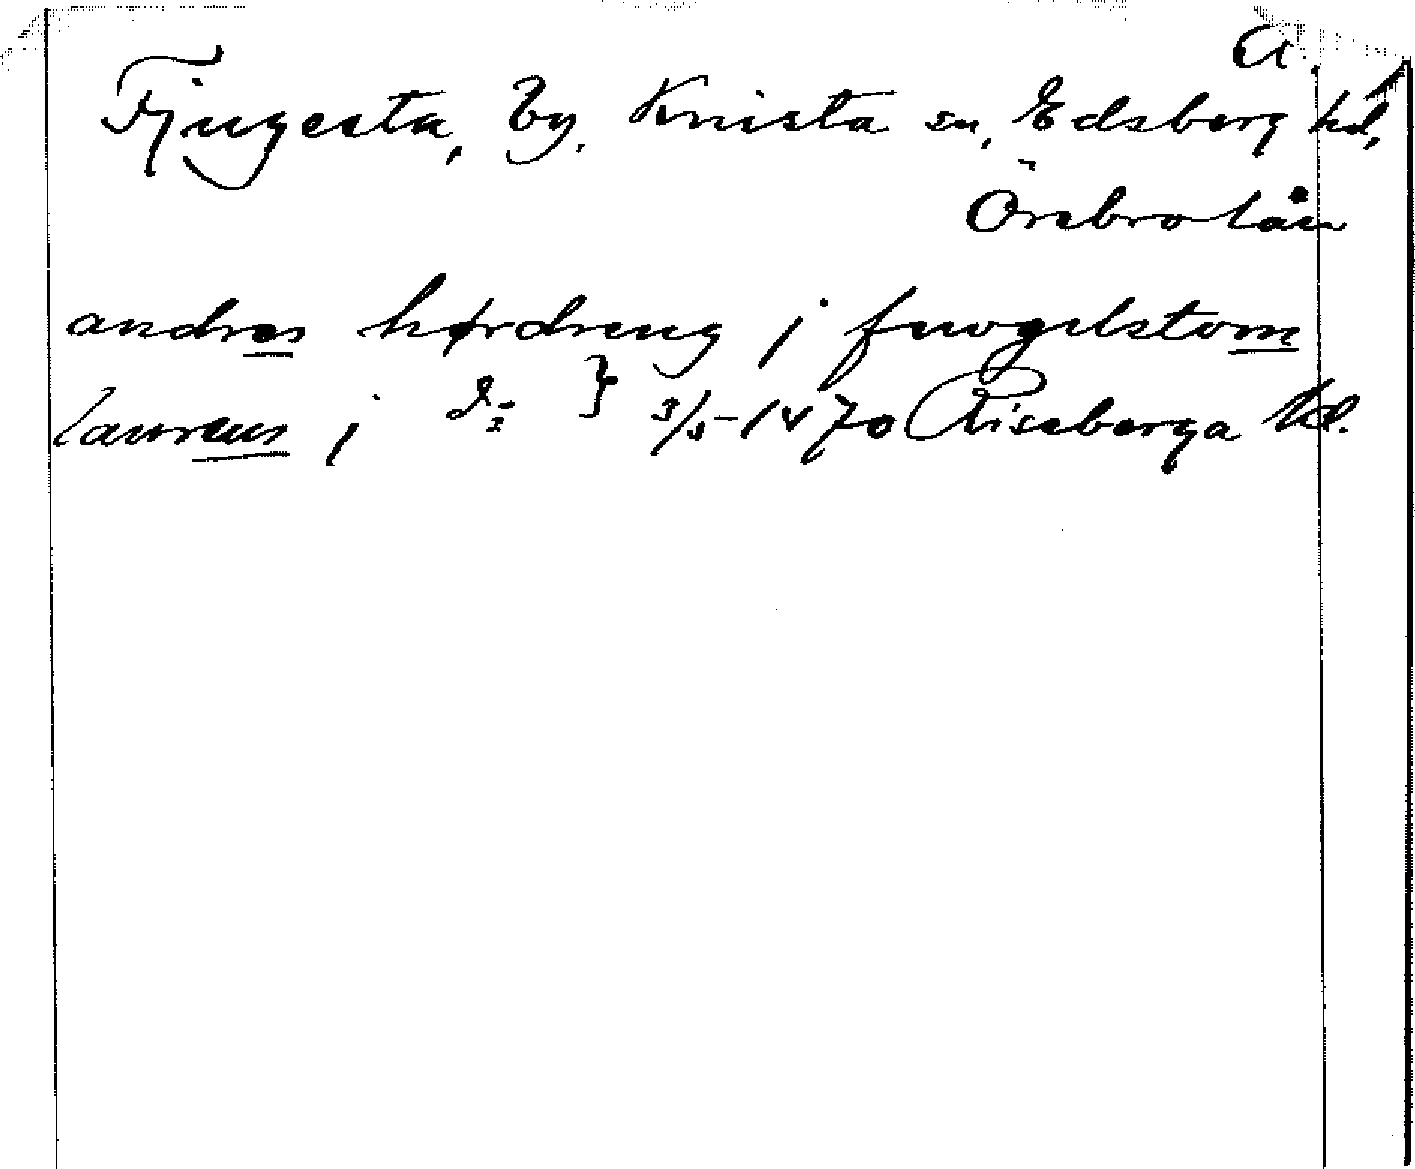 A.
Fjugesta, by, Knista sn, Edsberg hd,
Örebro län
andres hørdreng j fuogelstom
laurens j do } 3/5 1470 Riseberga kl.